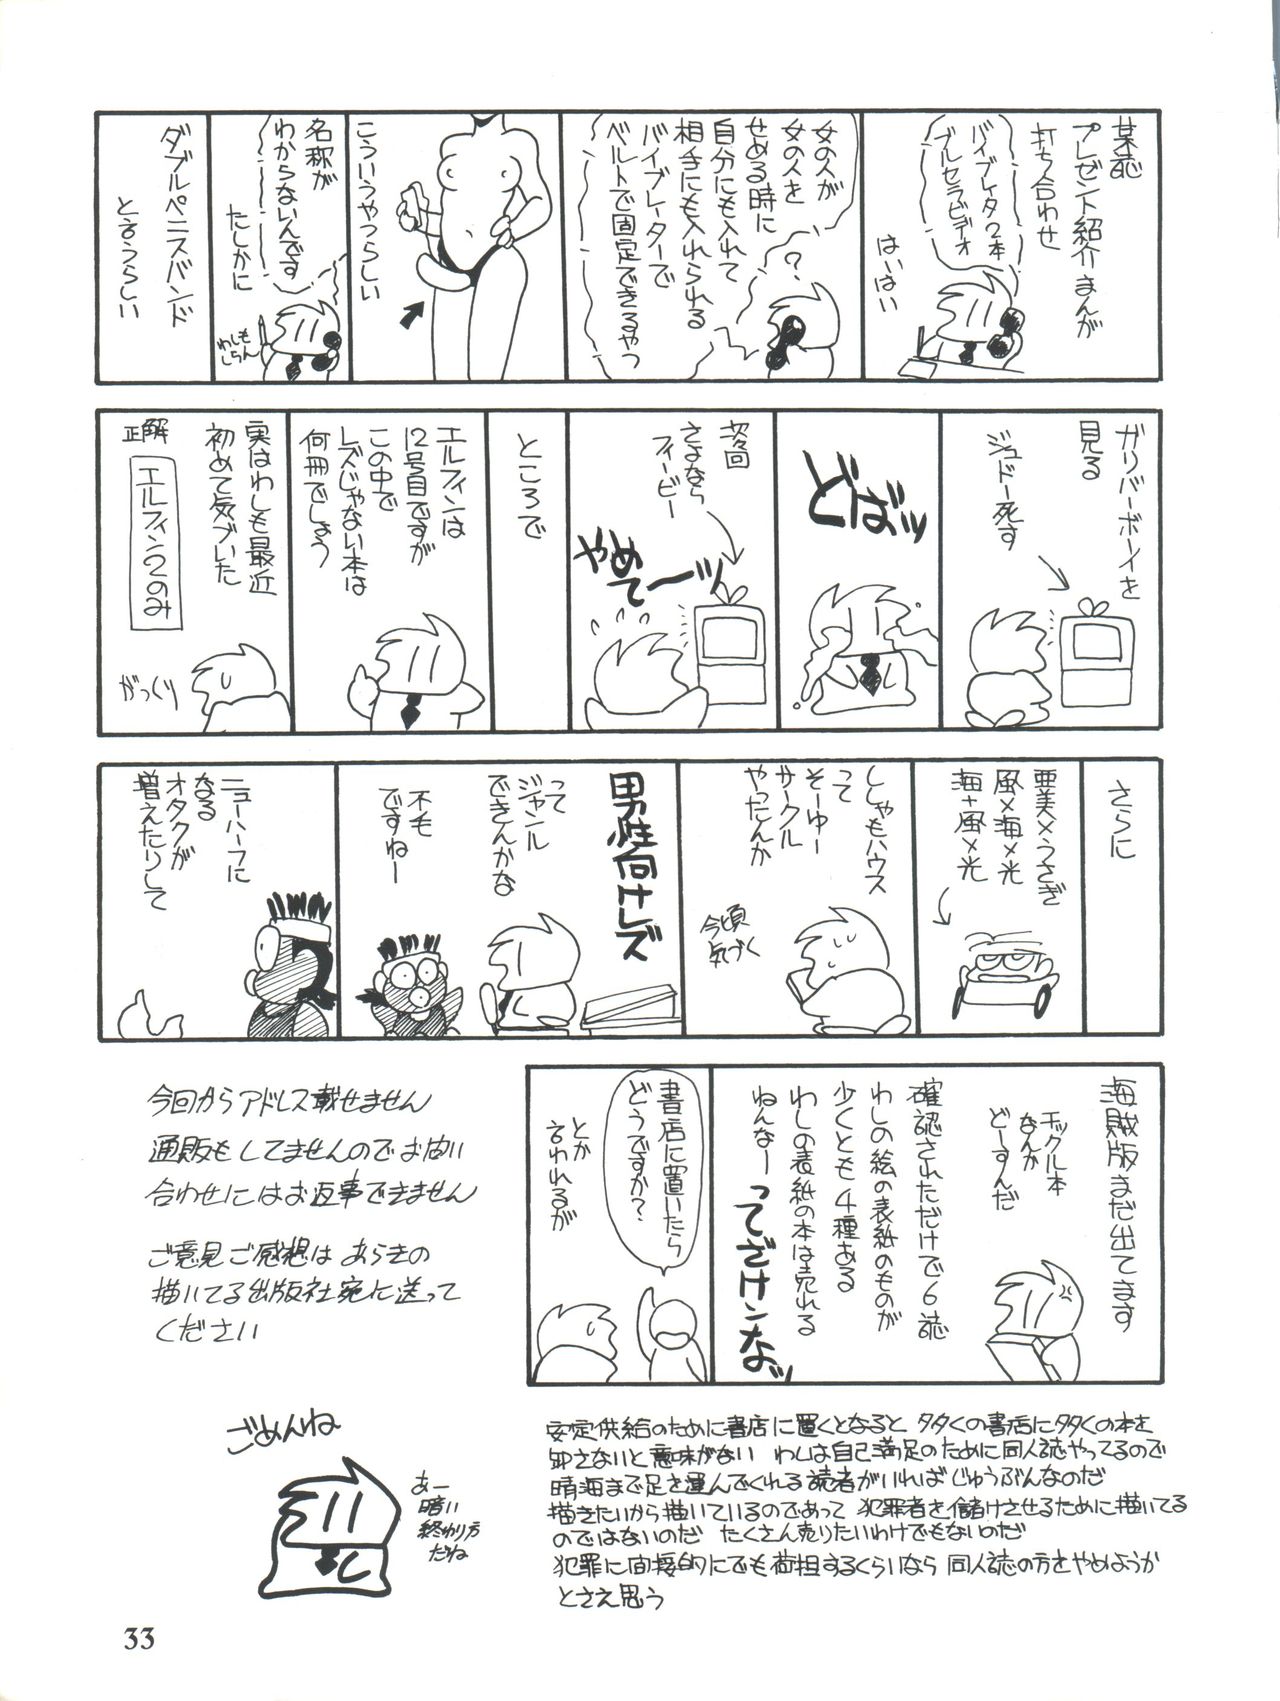 某誌
プレゼント紹介まんが
打ち合わせ
バイブレータ2本
ブルセラビデオ
はいはい
?
女の人が
女の人を
せめる時に
自分にも入れて
相手にも入れられる
バイブレーターで
ベルトで固定できるやつ
こういうやつらしい
名称が
わからないんです
たしかに
わしも
しらん
ダブルペニスバンド
と言うらしい
ガリバーボーイを
見る
ジュドー死す
どばッ
次回
さよなら
フィービー
やめ
て〜ッ
ところで
エルフィンは
12号目ですが
この中で
レズじゃない本は
何冊でしょう
実はわしも最近
初めて気づいた
正解
エルフィン2のみ
がっくり
さらに
亜美×うさぎ
風×海×光
海+風×光
ししゃもハウス
って
そーゆー
サークル
やったんか
今頃
気づく
男性向けレズ
って
ジャンル
できんかな
不毛
ですねー
ニューハーフに
なる
オタクが
増えたりして
海賊版まだ出てます
チックル本
なんか
どーすんだ
確認されただけで6誌
わしの絵の表紙のものが
少くとも4種ある
わしの表紙の本は売れる
ねんなー
ってざけンなッ
書店に置いたら
どうですか?
とか
言われるが
今回からアドレス載せません
通販もしてませんのでお問い
合わせにはお返事できません
ご意見ご感想はあらきの
描いてる出版社宛に送って
ください
ごめんね
あー
暗い
終わり方
だね
安定供給のために書店に置くとなると 多くの書店に多くの本を
卸さないと意味がない わしは自己満足のために同人誌やってるので
晴海まで足を運んでくれる読者がいればじゅうぶんなのだ
描きたいから描いているのであって 犯罪者を儲けさせるために描いてる
のではないのだ たくさん売りたいわけでもないのだ
犯罪に間接的にでも荷担するくらいなら 同人誌の方をやめようか
とさえ思う
33